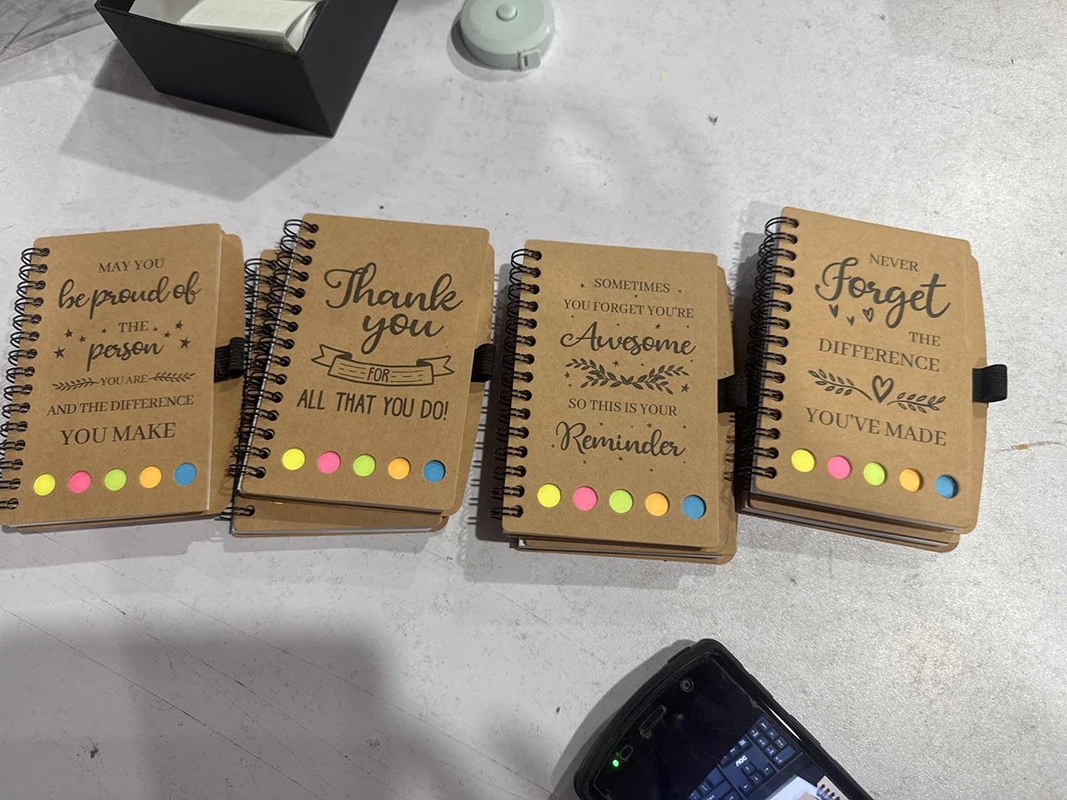 MAY YOU
be proud of
THE
person
YOU ARE
AND THE DIFFERENCE
YOU MAKE
Thank
you
FOR
ALL THAT YOU DO!
SOMETIMES
YOU FORGET YOU'RE
Awesome
SO THIS IS YOUR
Reminder
NEVER
Forget
THE
DIFFERENCE
YOU'VE MADE
AOC